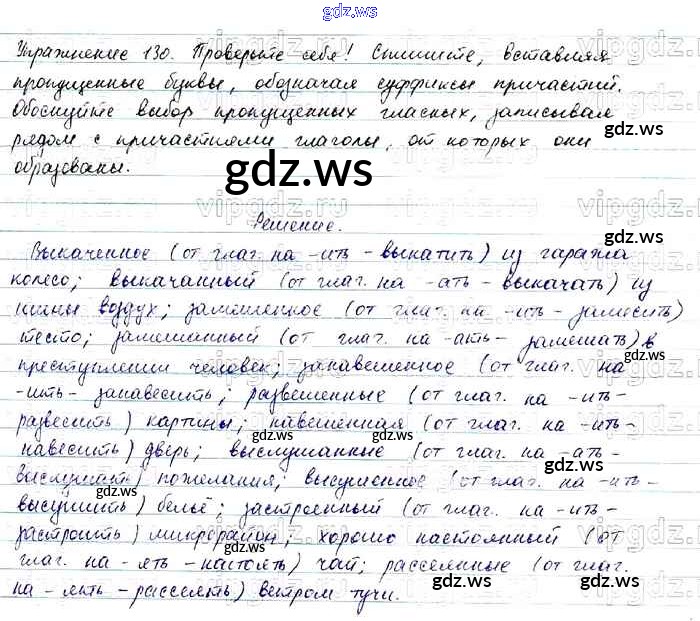 gdz.ws
Упражнение 130. Проверьте себя! Спишите, вставляя
пропущенные буквы, обозначая суффиксы причастий.
Обоснуйте выбор пропущенных гласных, записывая
рядом с причастиями глаголы, от которых они
образованы.
gdz.ws
gdz.ws
Решение.
Выкаченное (от глаг. на -ить - выкатить) из гаража
колесо; выкачанный (от глаг. на -ать - выкачать) из
gdz.ws
шины воздух; замешенное (от глаг. на -ить - замесить)
тесто; замешанный (от глаг. на -ать - замешать) в
преступлении человек; занавешенное (от глаг. на
gdz.ws
-ить - занавесить; развешенные (от глаг. на -ить -
развесить) картины; навешенная (от глаг. на -ить -
gdz.ws
навесить) дверь; выслушанные (от глаг. на -ать -
gdz.ws
выслушать) пожелания; высушенное (от глаг. на -ить -
высушить) бельё; застроенный (от глаг. на -ить -
gdz.ws
застроить) микрорайон; хорошо настоянный (от
глаг. на -ять - настоять) чай; рассеянные (от глаг.
gdz.ws
на -ять - рассеять) ветром тучи.
gdz.ws